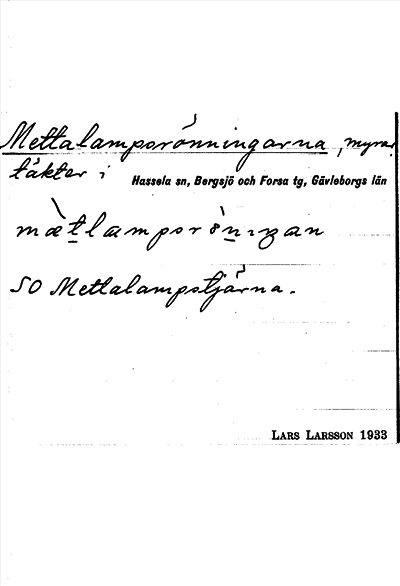 Mettalampsrönningarna, myrar,
täkter i Hassela sn, Bergsjö och Forsa tg, Gävleborgs län
mætlampsrönıŋan
SO Mettalampstjärna.
LARS LARSSON 1933